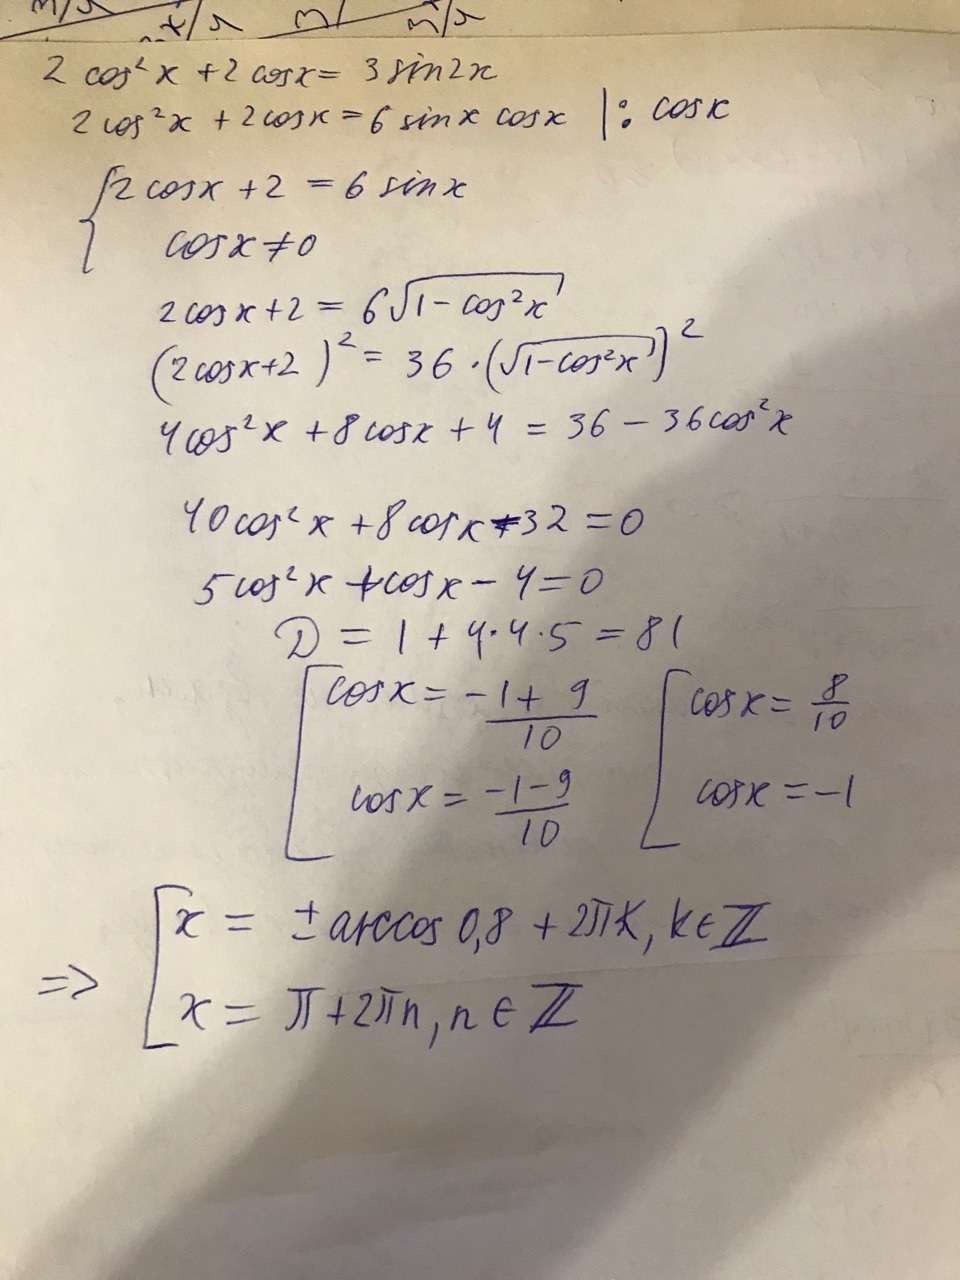 2 cos²x + 2 cosx = 3 sin2x
2 cos²x + 2cosx = 6 sinx cosx | : cosx
{ 2 cosx + 2 = 6 sinx
cosx ≠ 0
2 cosx + 2 = 6√(1 - cos²x)
(2 cosx+2)² = 36 · (√(1-cos²x))²
4cos²x + 8 cosx + 4 = 36 - 36cos²x
40cos²x + 8cosx - 32 = 0
5 cos²x + cosx - 4 = 0
D = 1 + 4·4·5 = 81
[ cosx = (-1 + 9)/10 [ cosx = 8/10
cosx = (-1-9)/10 cosx = -1
=> [ x = ± arccos 0,8 + 2πk, k ∈ ℤ
x = π + 2πn, n ∈ ℤ